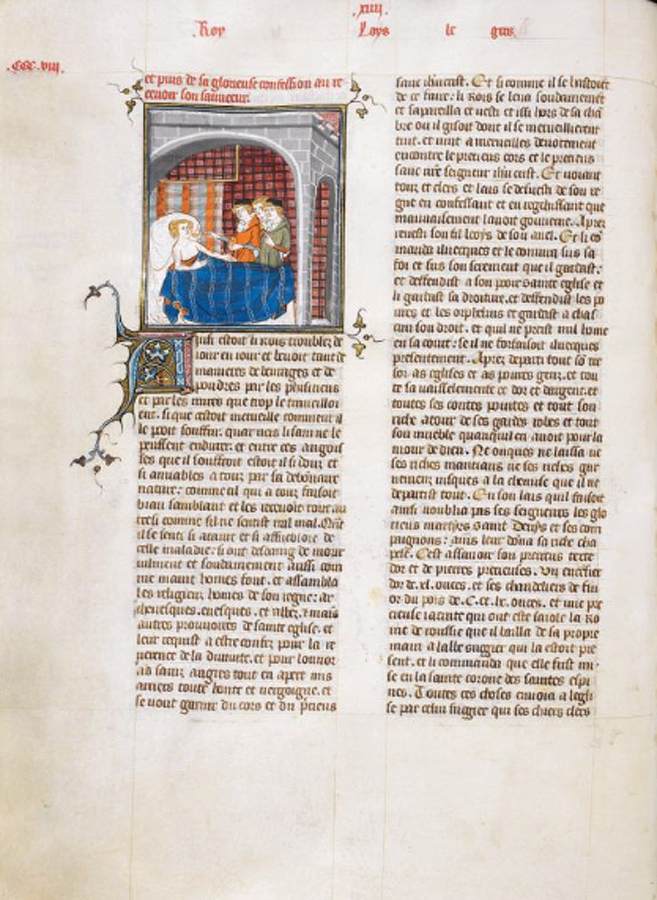 xiiii.
Roy Loys le gros
.CCC.viii.
et puis de sa glorieuse confession au re
cevoir son sauveeur.
Ainsi estoit li rois troublez de
jour en jour et bevoit tant de
manieres de bevrages et de
poudres par les phisiciens
et par les mires que trop le travailloi
ent. si que cestoit merveille comment il
le pooit souffrir. quar neis li sain ne le
peussent endurer. et entre ces angois
ses que il souffroit estoit il si douz et
si amiables a touz par sa debonaire
nature. comme cil qui a touz faisoit
biau samblant et les recevoit tout au
tresi comme sil ne sentist nul mal.
il se senti si ataint et si affiebloie de
celle maladie. si out desdaing de mourir
vilment et soudainement aussi com
me maint homes font. et assambla
les religieus homes de son regne. ar
chevesques. evesques. et abbez. et mains
autres prouvoires de sainte eglise. et
leur requist a estre confez pour la re
verence de la divinite. et pour lonnor
as sainz angres tout en apert mis
arriers toute honte et vergoigne. et
se vout garnir du cors et du precieus
sanc ihucrist. Et si comme il se hastoient
de ce faire. li Rois se leva soudainement
et sapareilla et vesti et issi hors de sa cha
bre ou il gisoit dont il se merveillierent
tuit. et vint a merveilles devotement
encontre le precieus cors et le precieus
sanc nostre seigneur ihucrist. Et voiant
touz et clers et lais se desvesti de son re
gne en confessant et en regehissant que
mauvaisement lavoit gouverne. Apres
revesti son fil looys de son anel. Et li co
manda illueques et le commist sus sa
foi et sus son serement que il gardast.
et deffendist a son pooir sainte eglise et
li gardast sa droiture. et deffendist les po
vres et les orphelins et gardast a chas
cun son droit. et quil ne preist nul home
en sa court. se il ne forfaisoit illueques
presentement. Apres departi tout so tre
sor as eglises et as povres genz. et tou
te sa vaissellemente et dor et dargent. et
toutes ses coutes pointes et tout son
riche atour de ses gardes robes et tout
son mueble quanquil en avoit pour la
mour de dieu. Ne onques ne laissa ne
ses riches mantiaus ne ses riches gar
nemenz jusques a la chemise que il ne
departist tout. En son lais quil faisoit
ainsi noublia pas ses seigneurs les glo
rieus martyrs saint Denys et ses com
paignons. ains leur dona sa riche cha
pele. Cest assavoir son precieus texte
dor et de pierres precieuses. Un encensier
dor de .xl. onces. et ses chandeliers de fin
or du pois de .C. et .lx. onces. et une pre
cieuse iacinte qui out este saiole la Roi
ne de roussie que il bailla de sa propre
main a labbe suggier qui la estoit pre
sent. et li commanda que elle fust mi
se en la sainte corone des saintes espi
nes. Toutes ces choses envoia a legli
se par celui suggier qui ses chiers clers